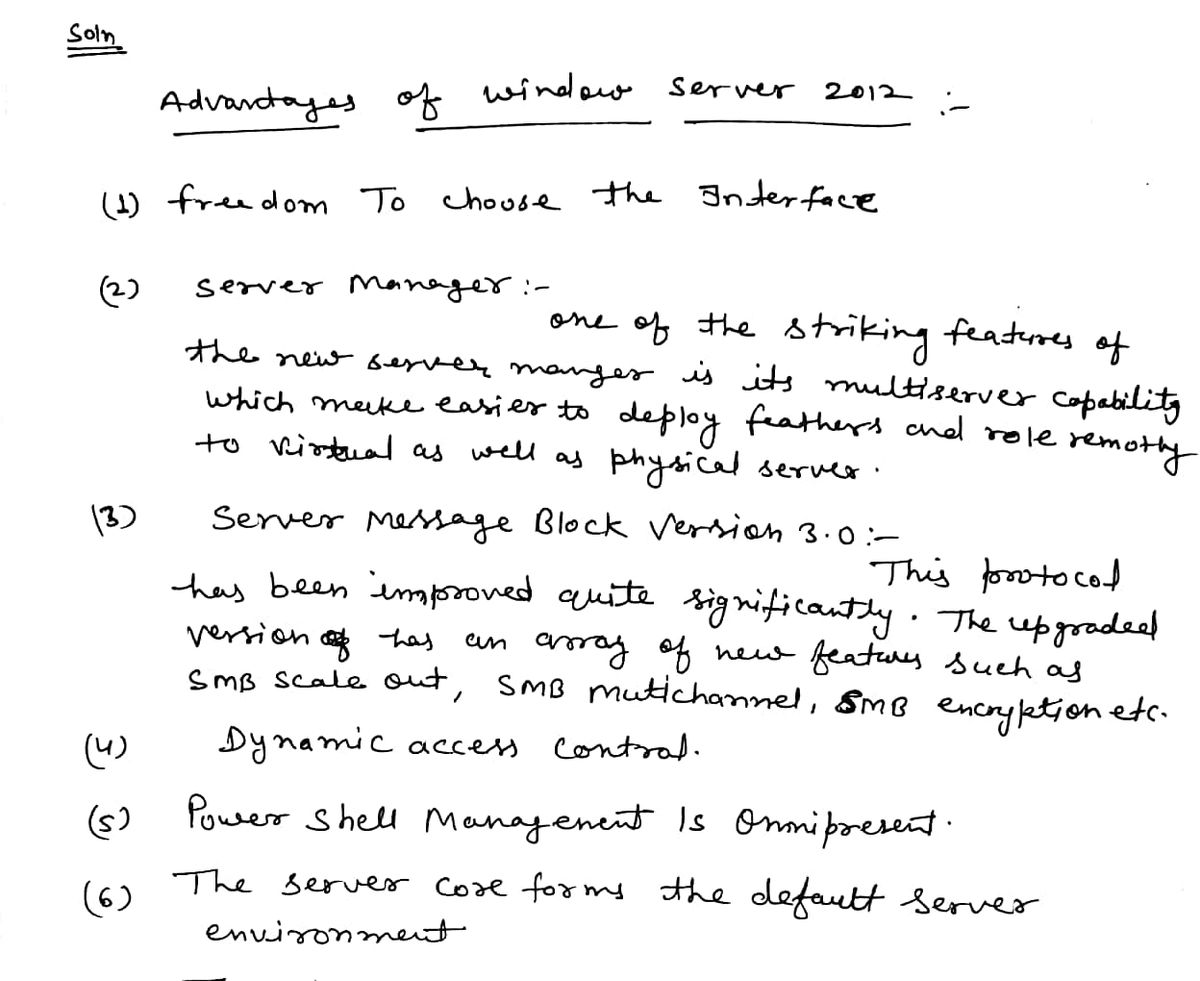 Soln
Advantages of window server 2012 :-
(1) freedom To choose the Interface
(2) server manager :-
one of the striking features of
the new server manger is its multiserver capability
which make easier to deploy feathers and role remotly
to virtual as well as physical server.
(3) Server Message Block Version 3.0 :-
This protocol
has been improved quite significantly. The upgraded
version has an array of new features such as
SMB scale out, SMB mutichannel, SMB encryption etc.
(4) Dynamic access control.
(5) Power shell Management Is Omnipresent.
(6) The server core forms the default server
environment